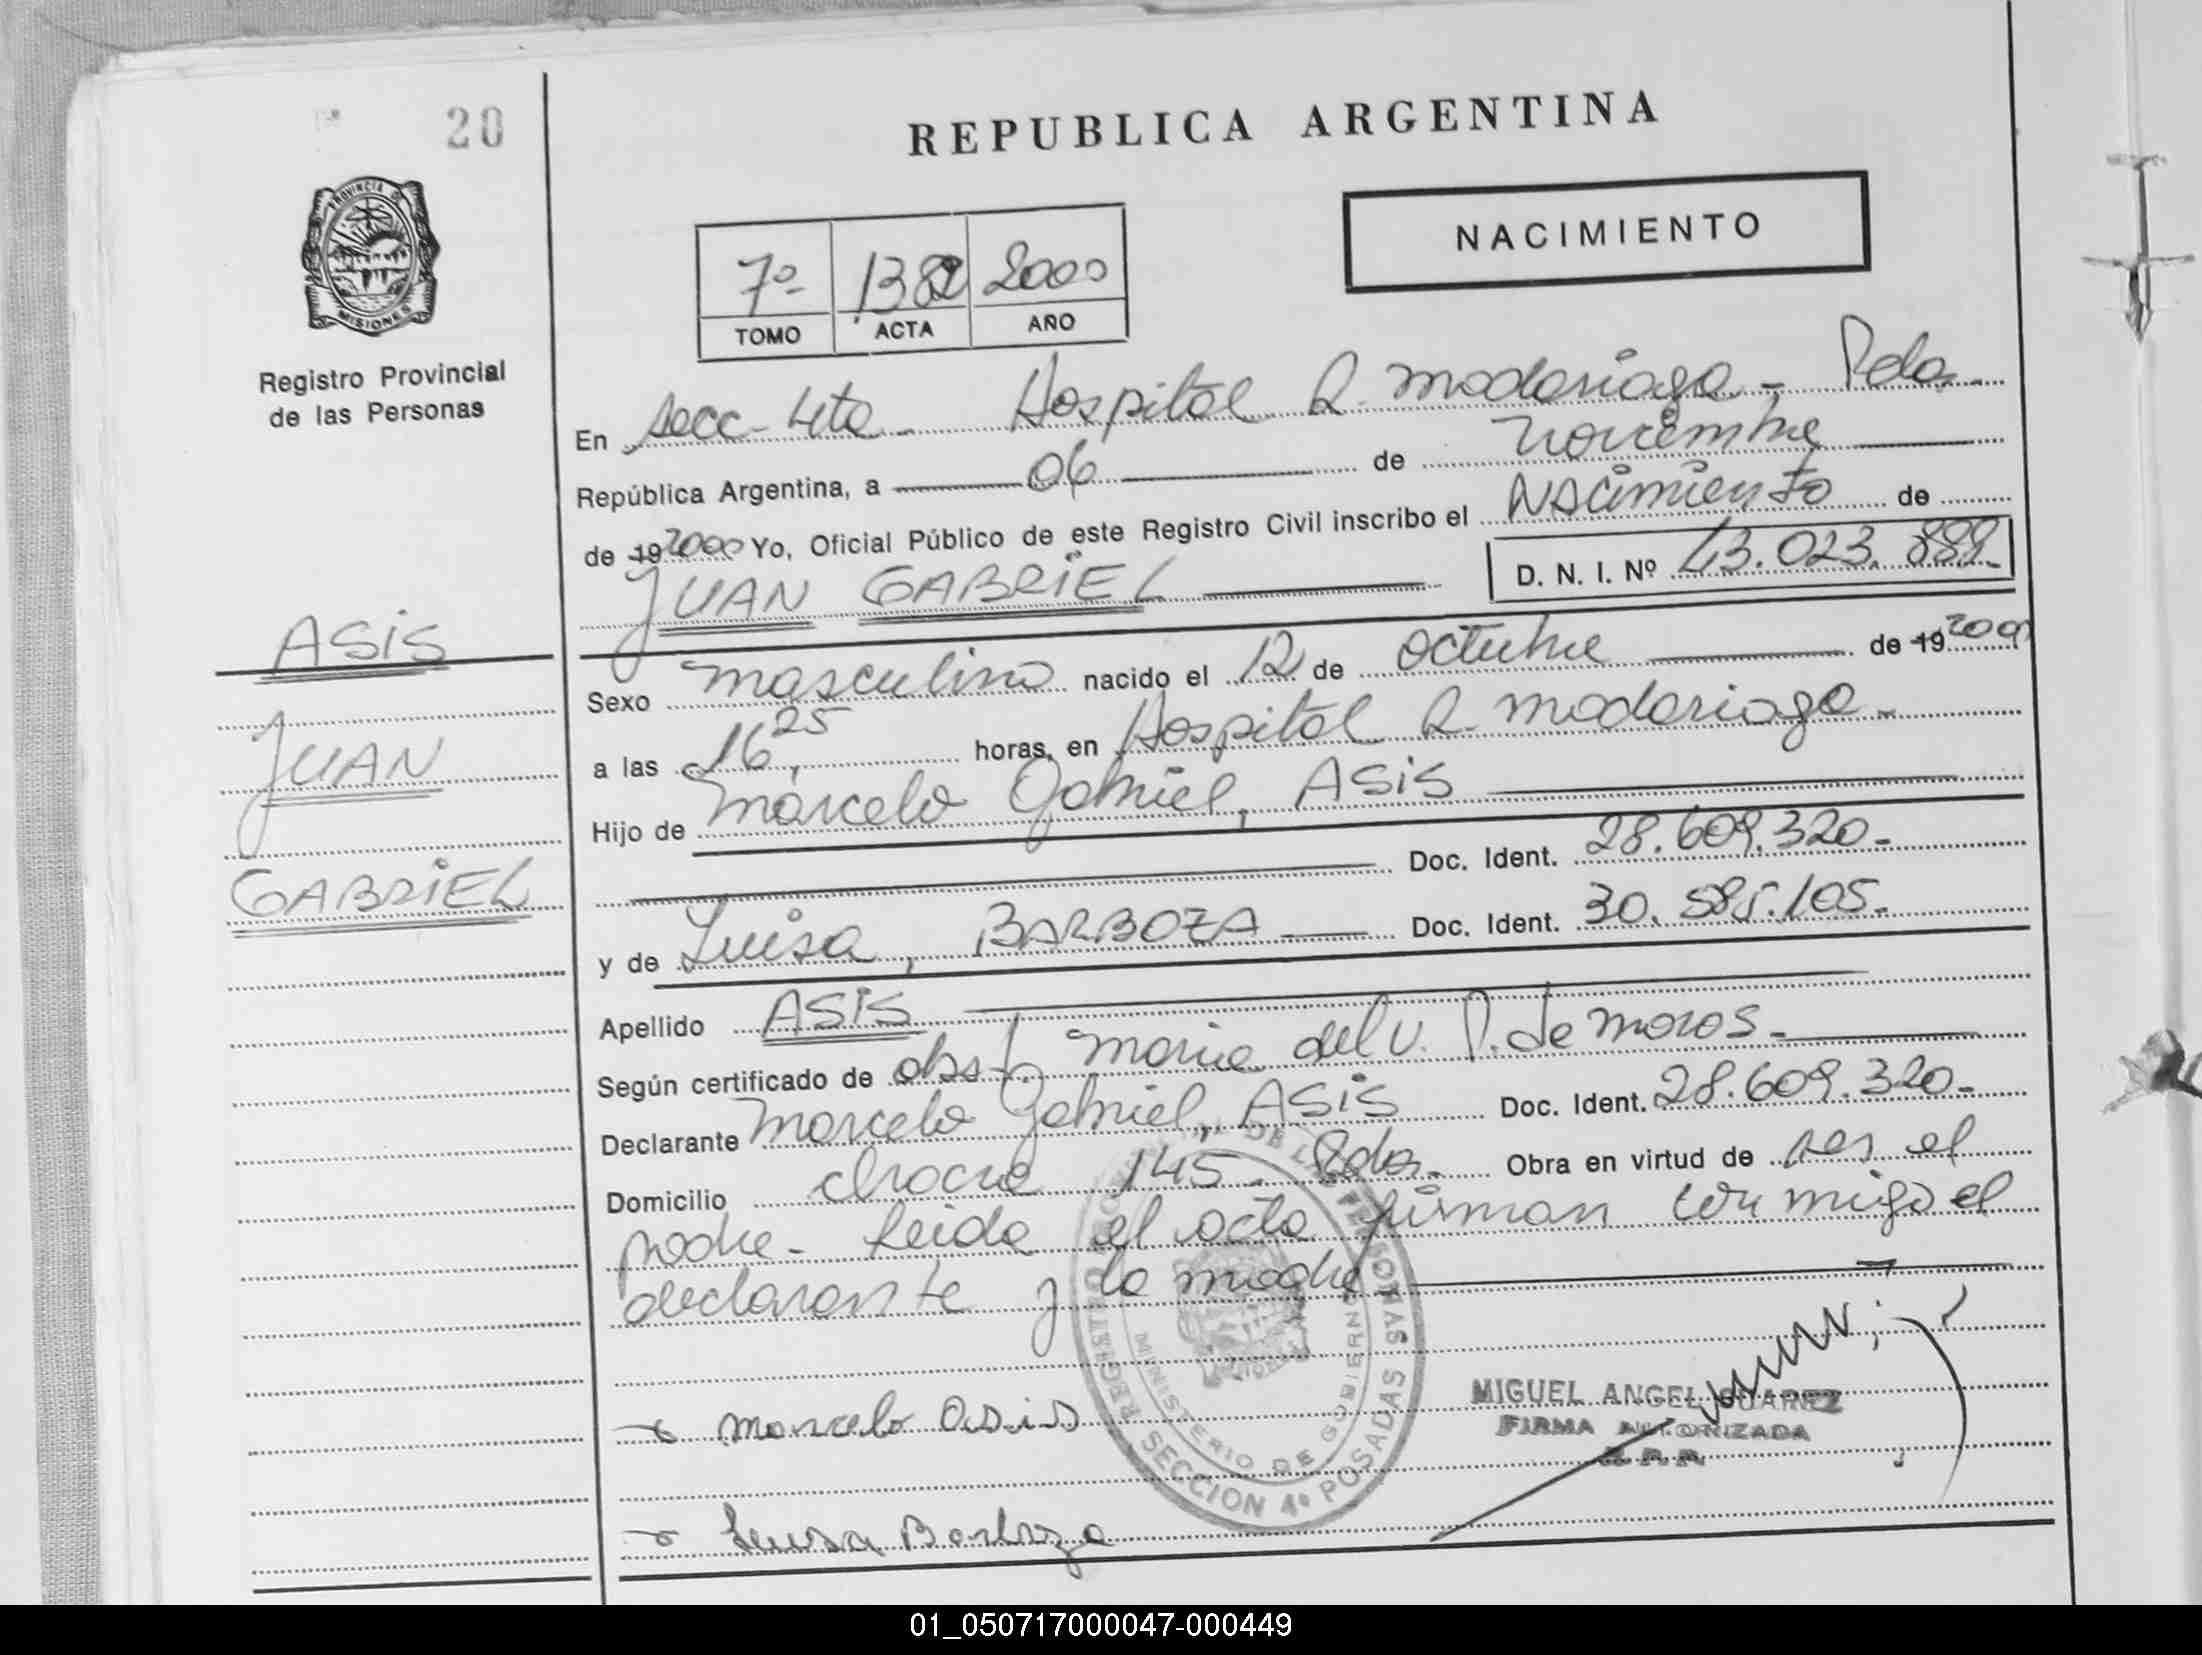 20
REPUBLICA ARGENTINA
NACIMIENTO
PROVINCIA DE
MISIONES
Registro Provincial
de las Personas
7º 1382 2000
TOMO ACTA AÑO
En Secc- 4ta - Hospital R. Madariaga - Pdas.
República Argentina, a 06 de noviembre
de 19 2000 Yo, Oficial Público de este Registro Civil inscribo el Nacimiento de
JUAN GABRIEL D. N. I. Nº 43.023.889
ASIS
JUAN
GABRIEL
Sexo masculino nacido el 12 de octubre de 19 2000
a las 16,25 horas, en Hospital R. Madariaga -
Hijo de Marcelo Gabriel, ASIS
Doc. Ident. 28.609.320-
y de Luisa, BARBOZA Doc. Ident. 30.585.105-
Apellido ASIS
Según certificado de obst. Maria del V. P. de Moros-
Declarante Marcelo Gabriel, ASIS Doc. Ident. 28.609.320-
Domicilio chacra 145 - Pdas. Obra en virtud de ser el
padre - Leida el acta firman conmigo el
declarante y la madre
Marcelo Asis
MIGUEL ANGEL SUAREZ
FIRMA AUTORIZADA
R.P.P.
Luisa Barboza
REGISTRO DE LAS PERSONAS
MINISTERIO DE GOBIERNO
SECCION 4º POSADAS
01_050717000047-000449